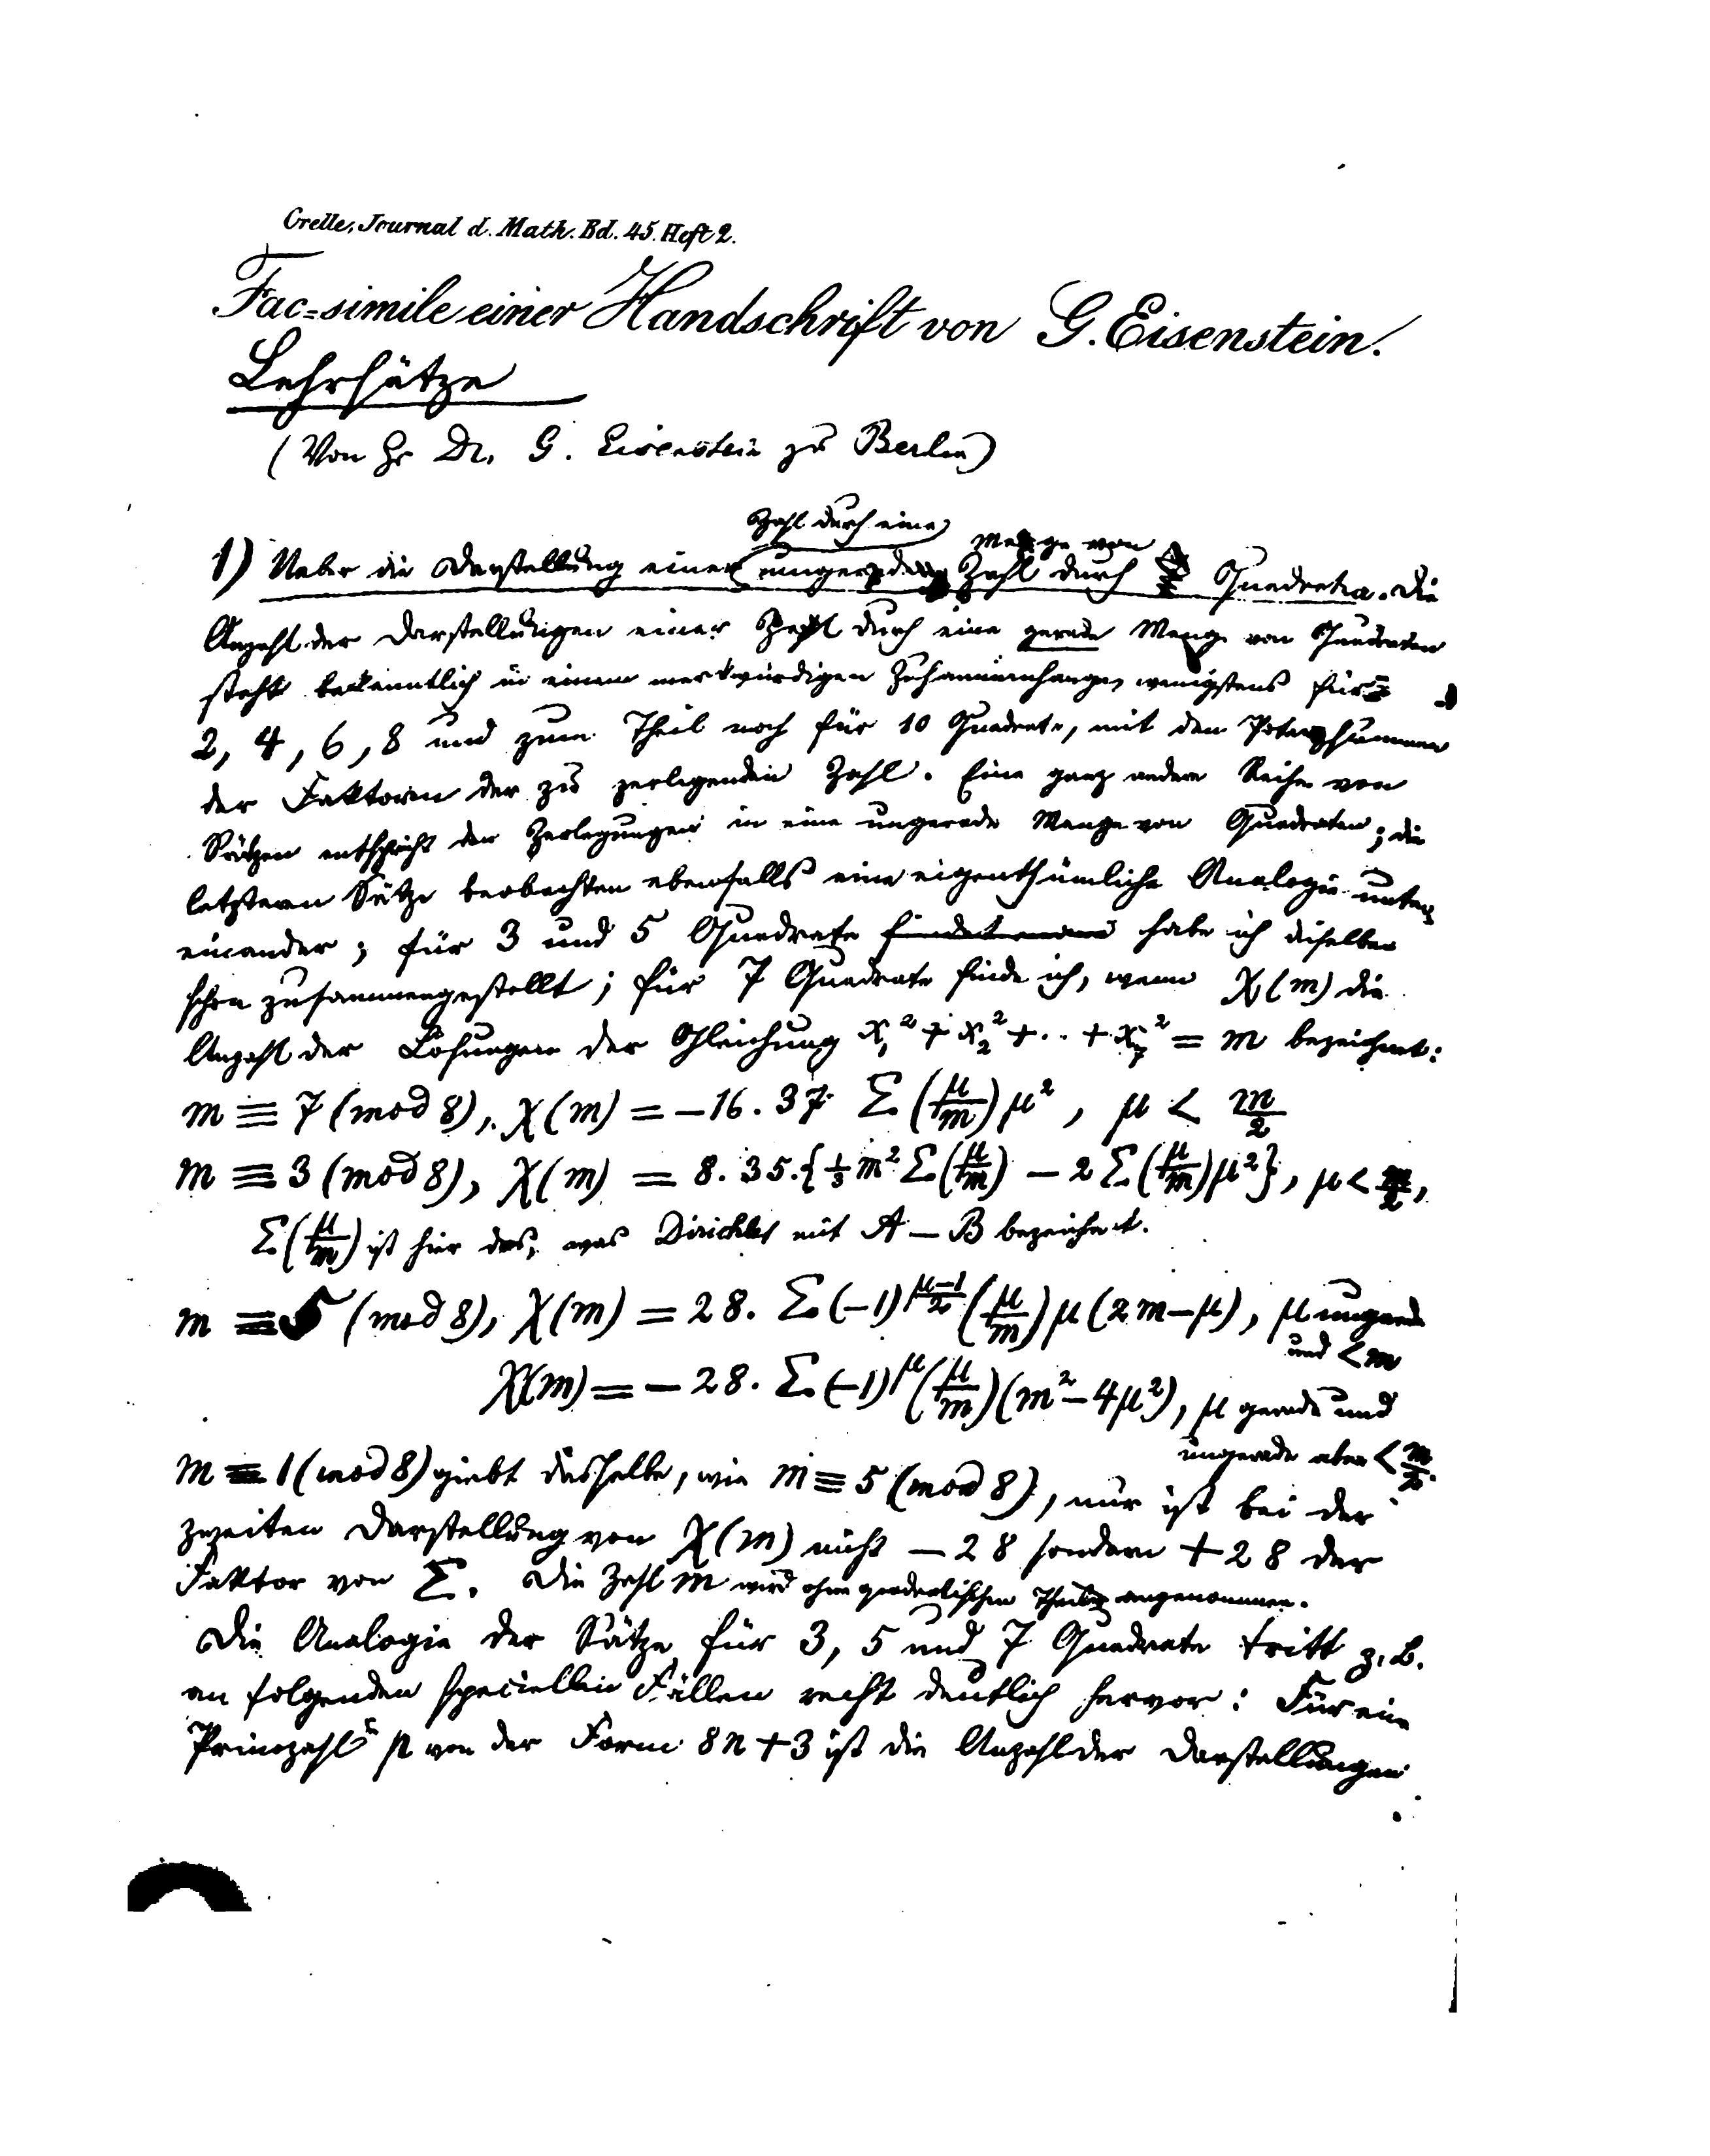 Crelle, Journal d. Math. Bd. 45. Heft 2.
Fac=simile einer Handschrift von G. Eisenstein.
Lehrsätze
(Von Hr Dr. G. Eisenstein zu Berlin)
Zahl durch eine Menge von
1) Ueber die Darstellung einer ungeraden Zahl durch Quadraten. Die
Anzahl der Darstellungen einer Zahl durch eine gerade Menge von Quadraten
steht bekanntlich in einem merkwürdigen Zusammenhange, wenigstens für
2, 4, 6, 8 und zum Theil noch für 10 Quadrate, mit den Potenzsummen
der Faktoren der zu zerlegenden Zahl. Eine ganz andere Reihe von
Sätzen entspricht den Zerlegungen in eine ungerade Menge von Quadraten; die
letztern Sätze beobachten ebenfalls eine eigenthümliche Analogie unter
einander; für 3 und 5 Quadrate findet man habe ich dieselben
schon zusammengestellt; für 7 Quadrate finde ich, wenn χ(m) die
Anzahl der Lösungen der Gleichung x₁² + x₂² + .. + x₇² = m bezeichnet:
m ≡ 7 (mod 8), χ(m) = −16. 37 Σ (μ/m) μ², μ < m/2
m ≡ 3 (mod 8), χ(m) = 8. 35. {⅓ m² Σ (μ/m) − 2 Σ (μ/m) μ²}, μ < m/2,
Σ (μ/m) ist hier das, was Dirichlet mit A — B bezeichnet.
m ≡ 5 (mod 8), χ(m) = 28. Σ (−1)^((μ−1)/2) (μ/m) μ (2m−μ), μ ungerade
und < m
χ(m) = − 28. Σ (−1)^μ (μ/m) (m² − 4μ²), μ gerade und
ungerade aber < m/2.
m ≡ 1 (mod 8) giebt dasselbe, wie m ≡ 5 (mod 8), nur ist bei der
zweiten Darstellung von χ(m) nicht − 28 sondern + 28 der
Faktor von Σ. Die Zahl m wird ohne quadratischen Theiler angenommen.
Die Analogie der Sätze für 3, 5 und 7 Quadrate tritt z. B.
an folgenden speciellen Fällen recht deutlich hervor: Für eine
Primzahl p von der Form 8n + 3 ist die Anzahl der Darstellungen